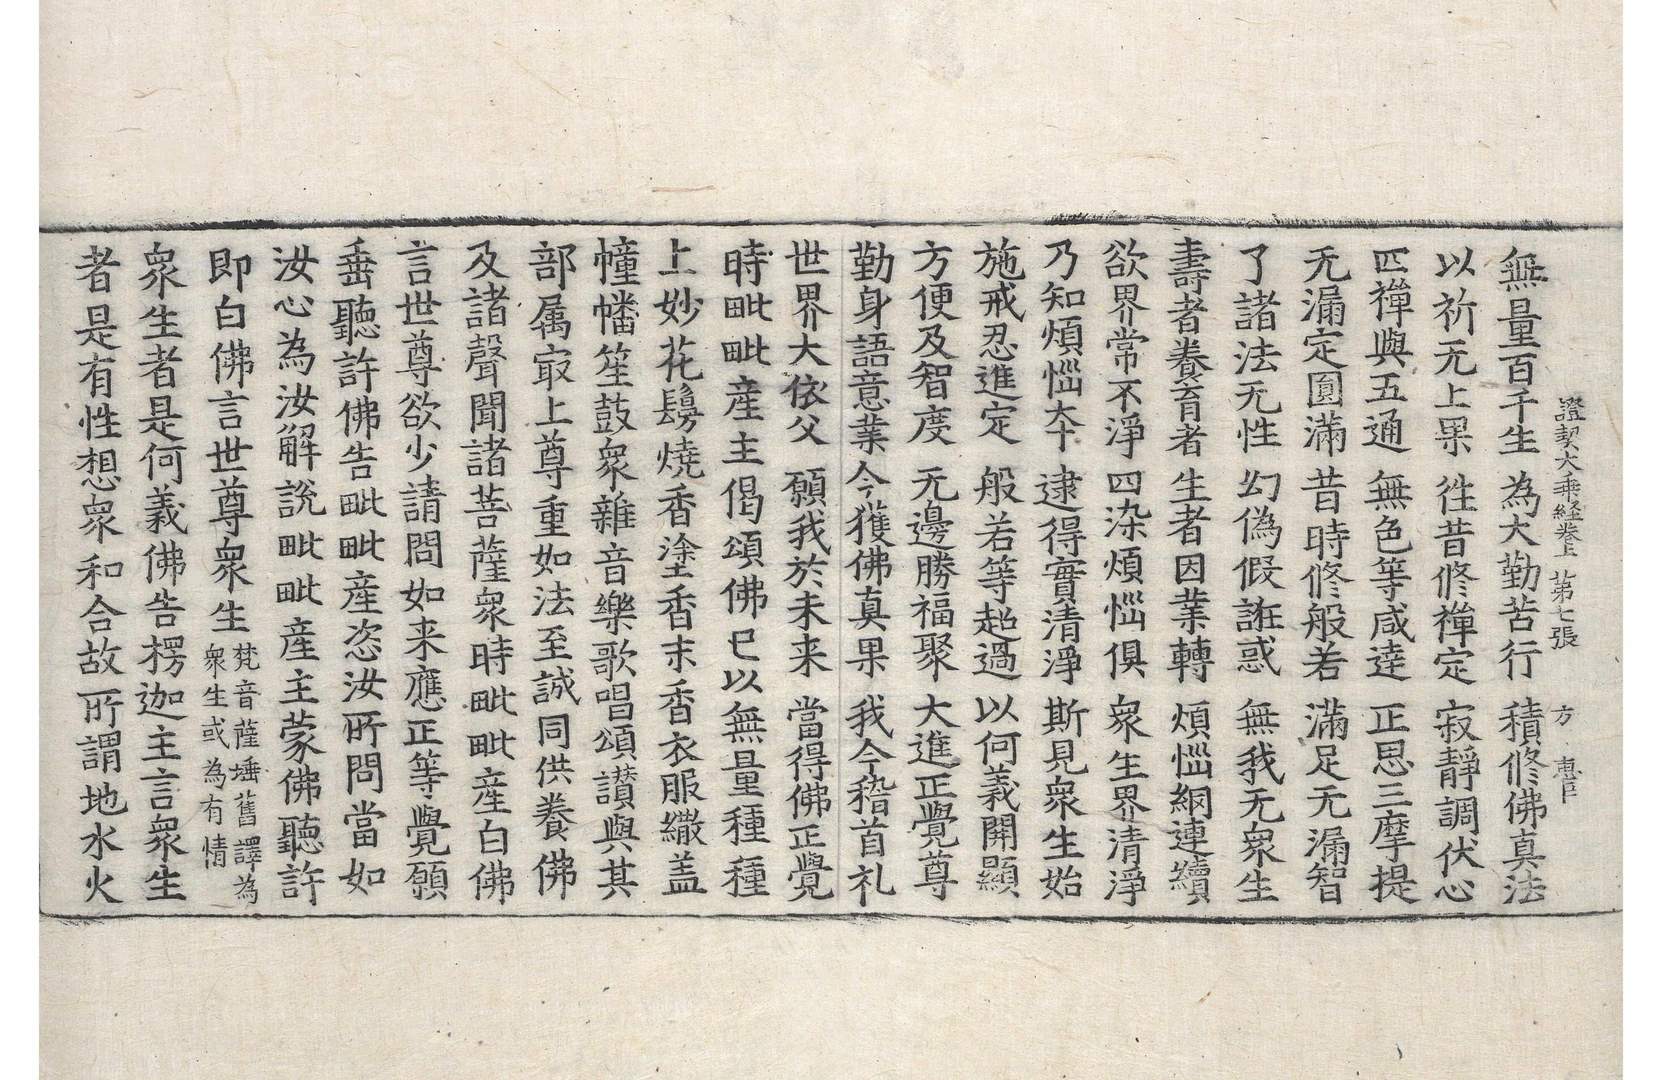 證契大乘経卷上 第七張 方
無量百千生 為大勤苦行 積修佛真法
以祈无上果 徃昔修禪定 寂靜調伏心
四禪與五通 無色等咸逹 正思三摩提
无漏定圎滿 昔時修般若 滿足无漏智
了諸法无性 幻偽假誑惑 無我无衆生
壽者養育者 生者因業轉 煩惱網連續
欲界常不淨 四染煩惱俱 衆生界清淨
乃知煩惱本 逮得實清淨 斯見衆生始
施戒忍進定 般若等超過 以何義開顯
方便及智度 无邊勝福聚 大進正覺尊
勤身語意業 今獲佛真果 我今稽首礼
世界大依父 願我於未来 當得佛正覺
時毗毗産主偈頌佛已以無量種種
上妙花鬘燒香塗香末香衣服繖盖
幢幡笙鼓衆雜音樂歌唱頌讃與其
部属㝡上尊重如法至誠同供養佛
及諸聲聞諸菩薩衆時毗毗産白佛
言世尊欲少請問如来應正等覺願
垂聽許佛告毗毗産恣汝所問當如
汝心為汝解說毗毗産主蒙佛聽許
即白佛言世尊衆生 梵音薩埵舊譯為 衆生或為有情
衆生者是何義佛告楞迦主言衆生
者是有性想衆和合故所謂地水火